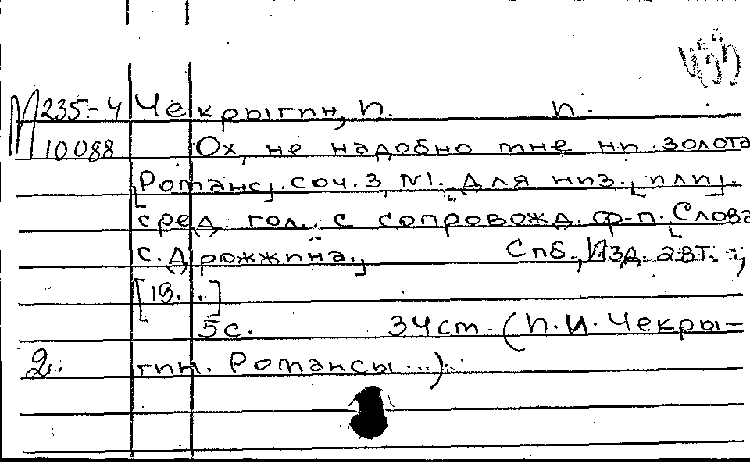 М 235-4 Чекрыгин, П. п.
10088 Ох, не надобно мне ни золота
[Романс]. Соч. 3, №1. Для низ. [или].
сред. гол. с сопровожд. ф-п. [Слова
С. Дрожжина]. Спб., Изд. авт.
[19..]
5с. 34см. (П. И. Чекры=
2. гин. Романсы...).